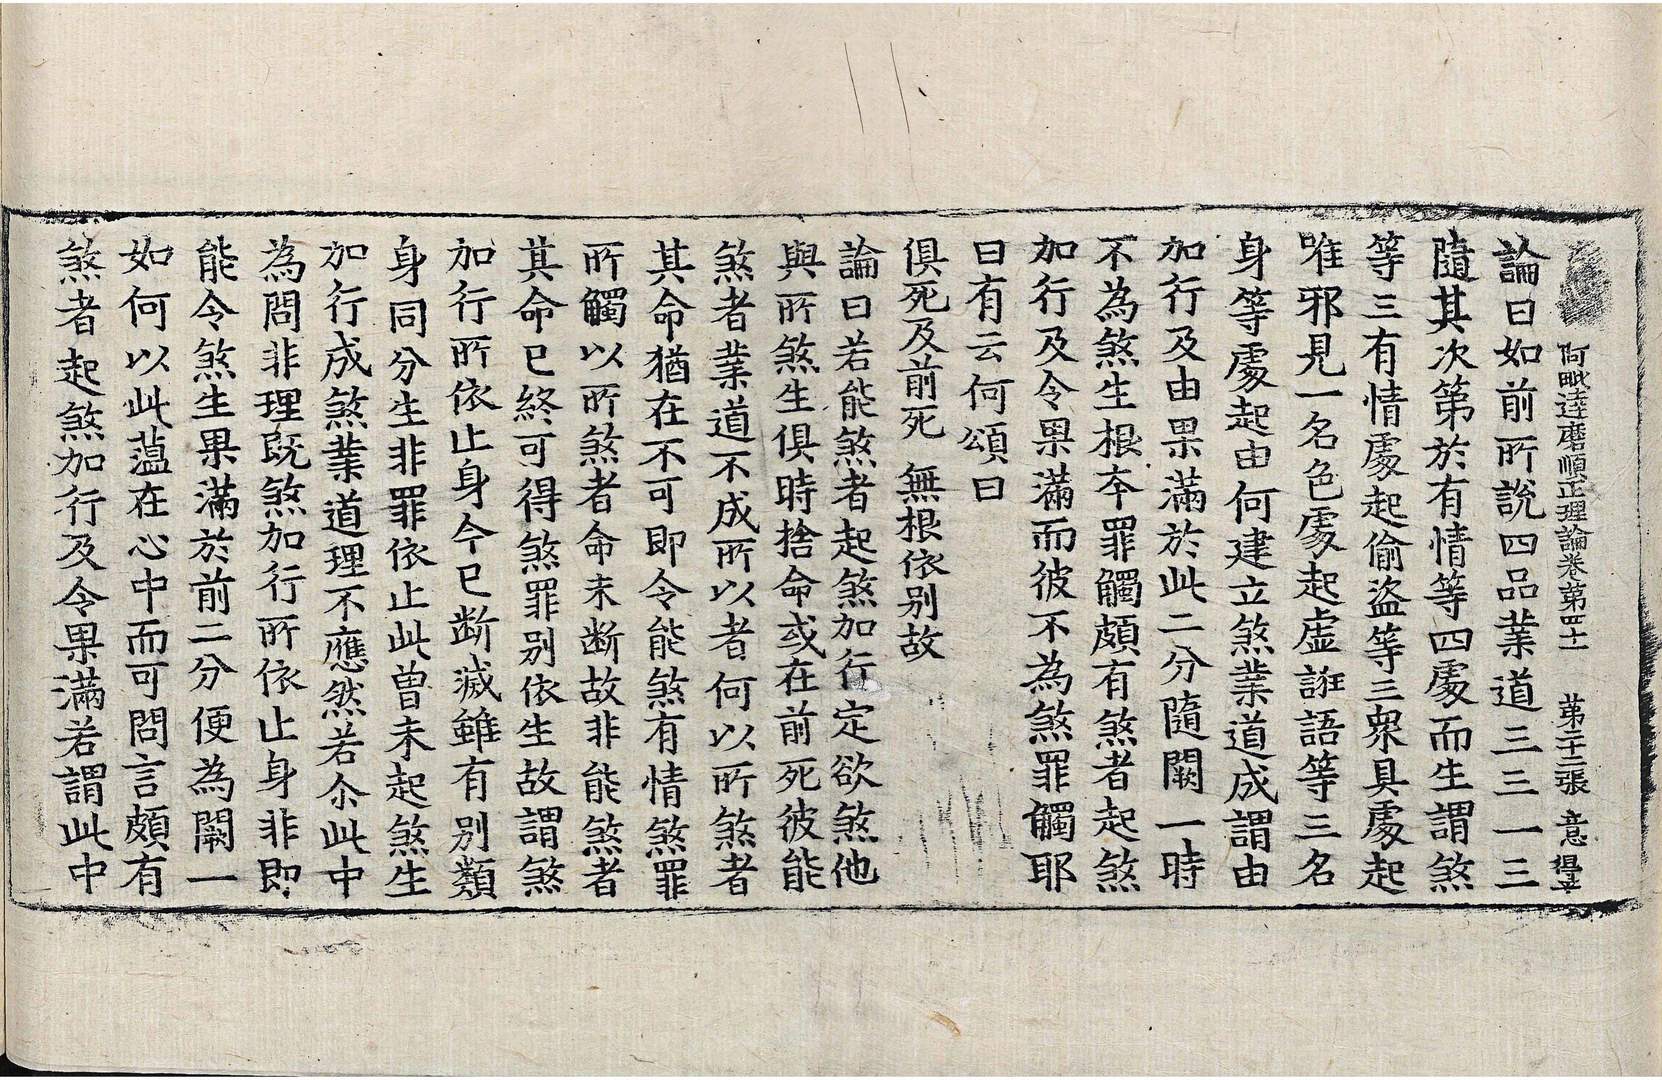 阿毗達磨順正理論卷第四十二 第二十二張 意
論曰如前所說四品業道三三一三
隨其次第於有情等四處而生謂煞
等三有情處起偷盜等三衆具處起
唯邪見一名色處起虛誑語等三名
身等處起由何建立煞業道成謂由
加行及由果滿於此二分隨闕一時
不為煞生根本罪觸頗有煞者起煞
加行及令果滿而彼不為煞罪觸耶
曰有云何頌曰
俱死及前死 無根依別故
論曰若能煞者起煞加行定欲煞他
與所煞生俱時捨命或在前死彼能
煞者業道不成所以者何以所煞者
其命猶在不可即令能煞有情煞罪
所觸以所煞者命未斷故非能煞者
其命已終可得煞罪別依生故謂煞
加行所依止身今已斷滅雖有別類
身同分生非罪依止此曾未起煞生
加行成煞業道理不應然若尒此中
為問非理既煞加行所依止身非即
能令煞生果滿於前二分便為闕一
如何以此薀在心中而可問言頗有
煞者起煞加行及令果滿若謂此中